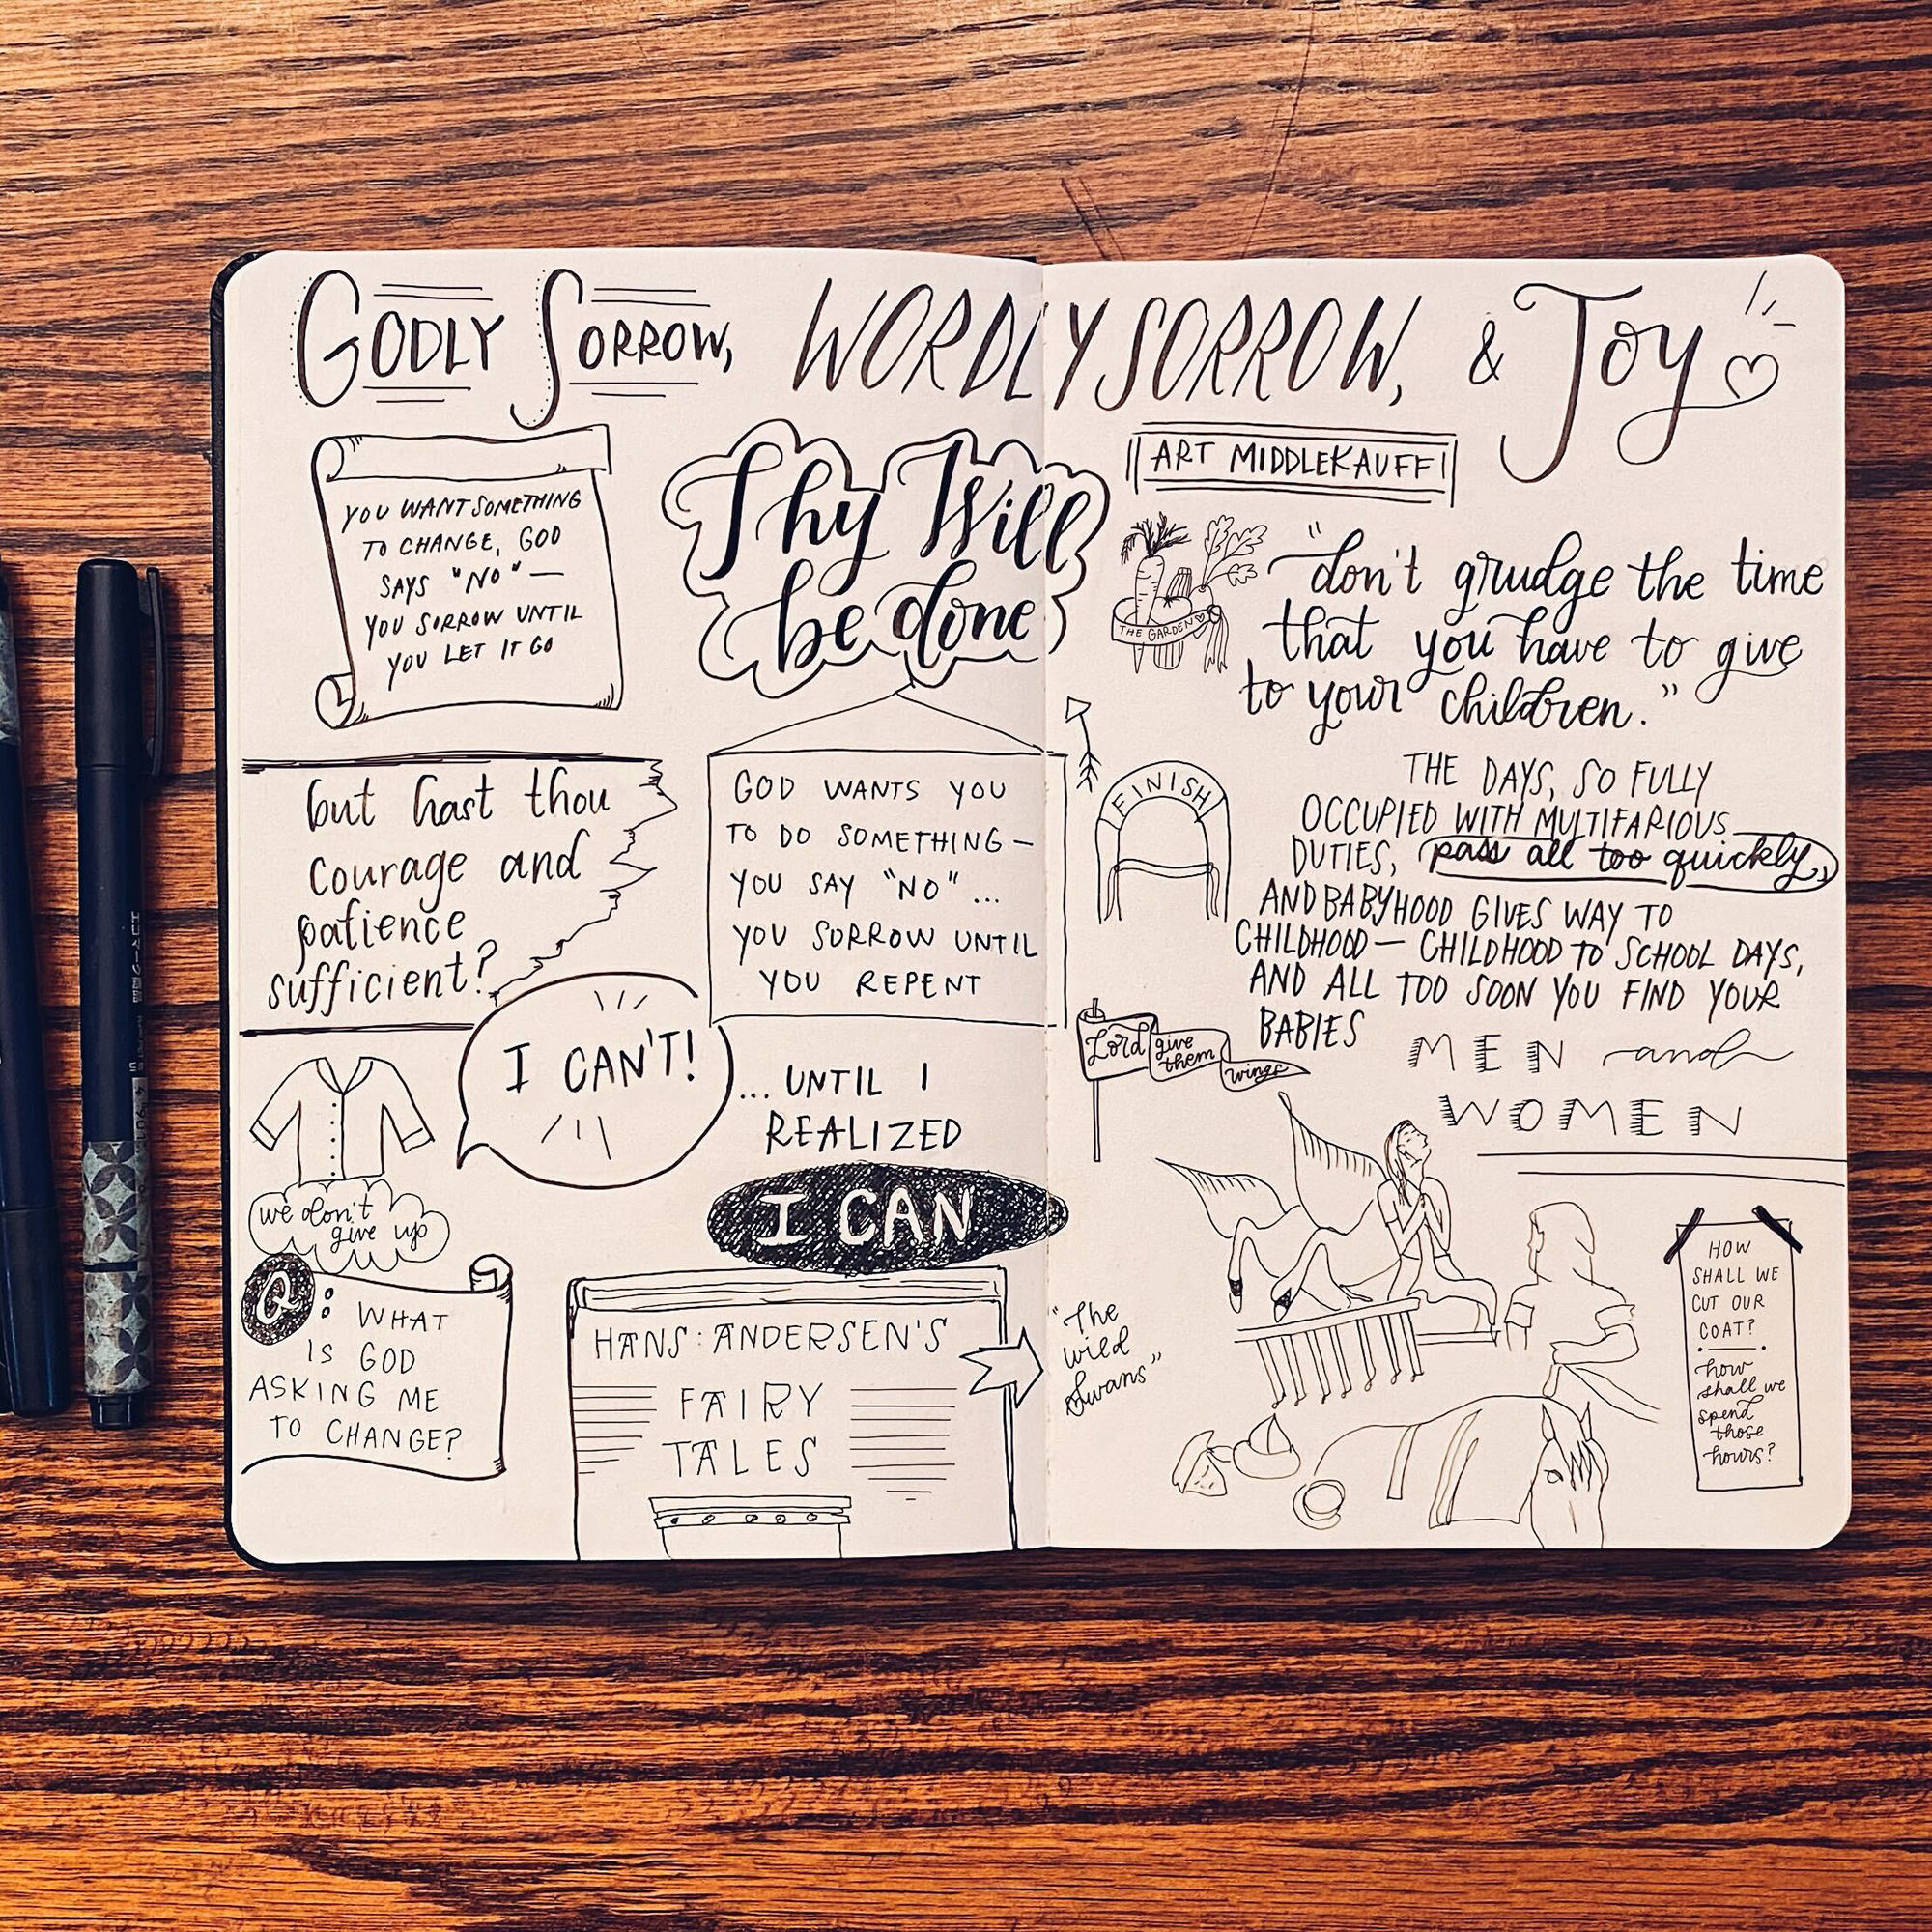 GODLY SORROW, WORDLY SORROW, & Joy
ART MIDDLEKAUFF
YOU WANT SOMETHING
TO CHANGE, GOD
SAYS "NO" —
YOU SORROW UNTIL
YOU LET IT GO
Thy Will
be done
but hast thou
courage and
patience
sufficient?
GOD WANTS YOU
TO DO SOMETHING —
YOU SAY "NO"...
YOU SORROW UNTIL
YOU REPENT
I CAN'T!
...UNTIL I
REALIZED
I CAN
we don't
give up
Q: WHAT
IS GOD
ASKING ME
TO CHANGE?
HANS: ANDERSEN'S
FAIRY
TALES
"The
wild
Swans"
THE GARDEN
"don't grudge the time
that you have to give
to your children."
FINISH
THE DAYS, SO FULLY
OCCUPIED WITH MULTIFARIOUS
DUTIES, pass all too quickly,
AND BABYHOOD GIVES WAY TO
CHILDHOOD — CHILDHOOD TO SCHOOL DAYS,
AND ALL TOO SOON YOU FIND YOUR
BABIES
MEN and
WOMEN
Lord give
them
wings
HOW
SHALL WE
CUT OUR
COAT?
how
shall we
spend
those
hours?